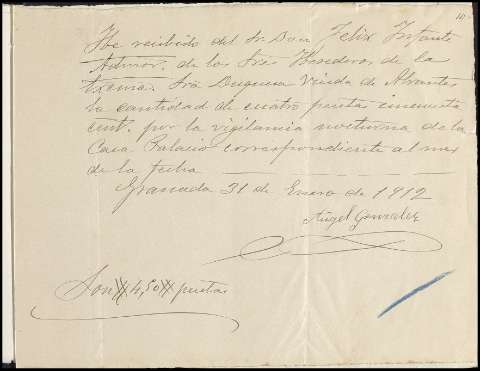 10
He recibido del Sr. Don Felix Infante
Admor. de los Sres Herederos de la
Excma. Sra Duquesa Viuda de Abrantes
la cantidad de cuatro pesetas cincuenta
cent. por la vigilancia nocturna de la
Casa Palacio correspondiente al mes
de la fecha
Granada 31 de Enero de 1912
Angel Gonzalez
Son # 4,50 # pesetas